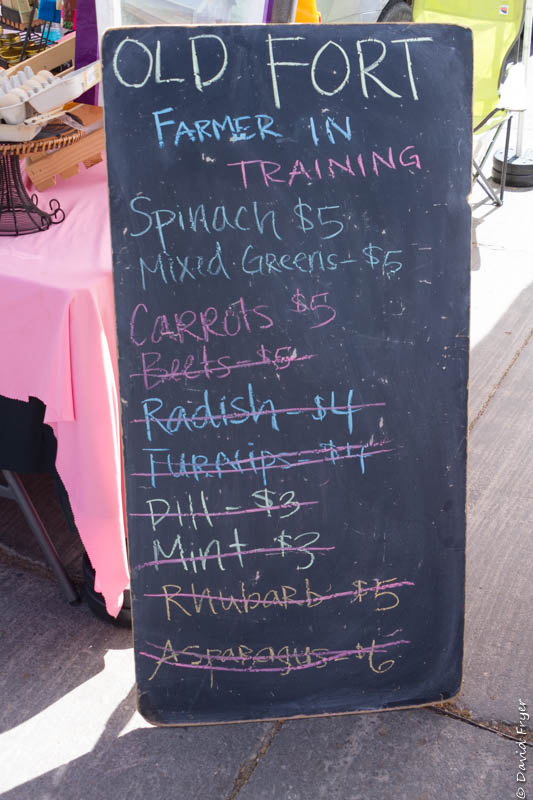 OLD FORT
FARMER IN
TRAINING
Spinach $5
Mixed Greens - $5
Carrots $5
Beets - $5
Radish - $4
Turnips - $4
Dill - $3
Mint - $3
Rhubarb - $5
Asparagus - $6
© David Fryer